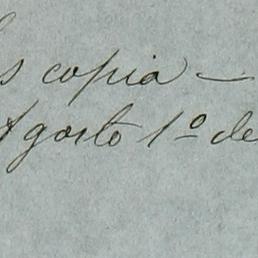 Es copia —
Agosto 1º de